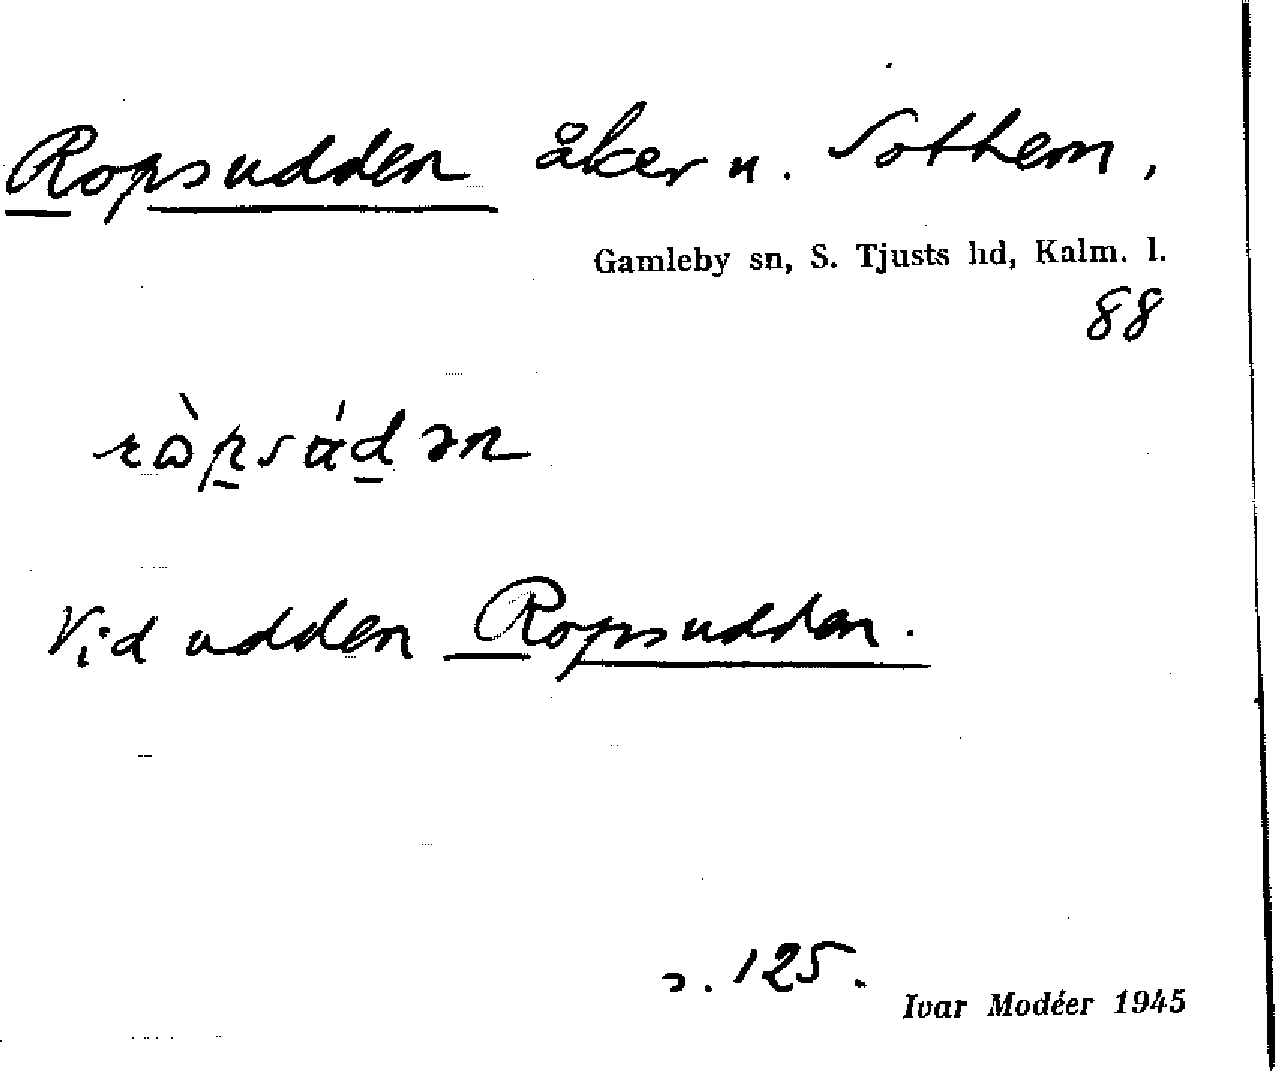 Ropsudden åker u. Sothem,
Gamleby sn, S. Tjusts hd, Kalm. l.
88
Vid udden Ropsudden.
s. 125.
Ivar Modéer 1945